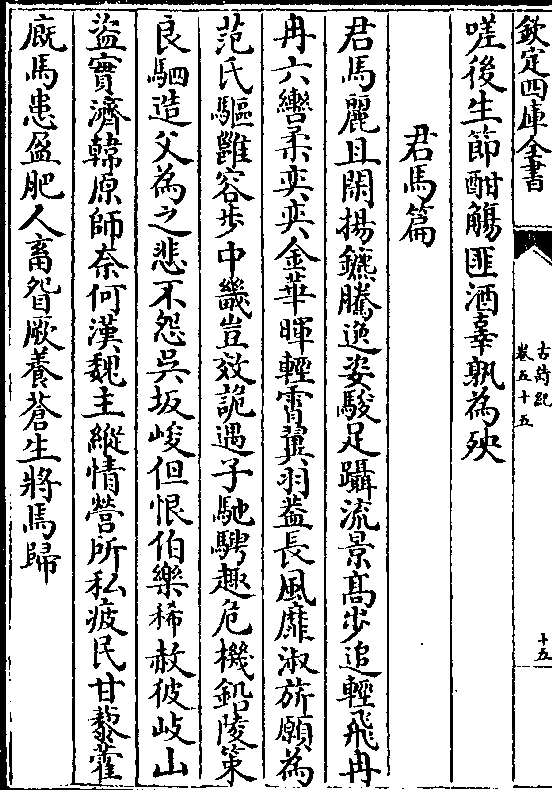 欽定四庫全書
古詩紀
卷五十五
十五
嗟後生節酣觴匪酒辜孰為殃
君馬篇
君馬麗且閑揚鑣騰逸姿駿足躡流景高步追輕飛冉
冉六轡柔奕奕金華暉輕霄翼羽蓋長風靡淑旂願為
范氏驅雝容步中畿豈效詭遇子馳騁趣危機鉛陵策
良駟造父為之悲不怨吳坂峻但恨伯樂稀赦彼岐山
盜實濟韓原師奈何漢魏主縱情營所私疲民甘藜藿
廐馬患盈肥人畜眢厥養蒼生將焉歸